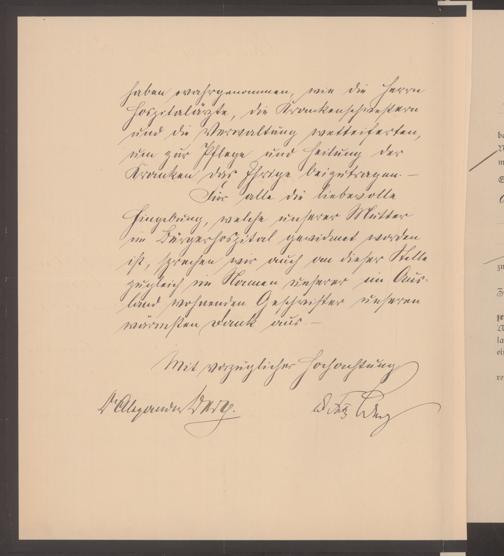 haben wahrgenommen, wie die Herrn
Hospitalärzte, die Krankenschwestern
und die Verwaltung wetteiferten,
um zur Pflege und Heilung der
Kranken das Ihrige beizutragen. —
Für alle die liebevolle
Hingebung, welche unserer Mutter
im Bürgerhospital gewidmet worden
ist, sprechen wir auch an dieser Stelle
zugleich im Namen unserer im Aus-
land wohnenden Geschwister unseren
wärmsten Dank aus —
Mit vorzüglicher Hochachtung
Dr Alexander